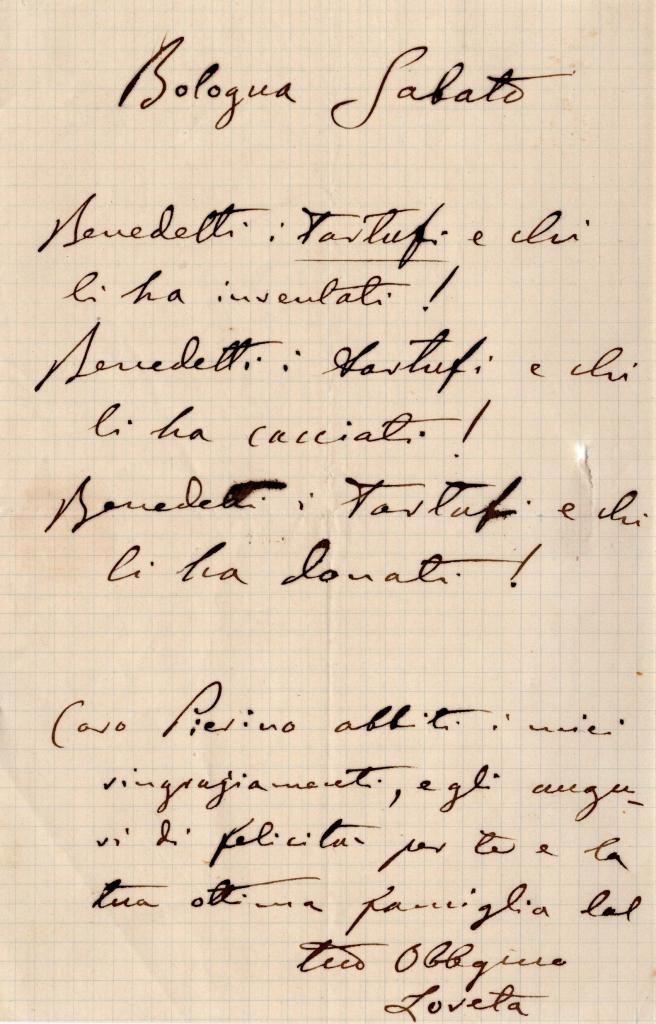 Bologna Sabato
Benedetti i tartufi e chi
li ha inventati!
Benedetti i tartufi e chi
li ha cacciati!
Benedetti i tartufi e chi
li ha donati!
Caro Pierino abbiti i miei
ringraziamenti, e gli augu-
ri di felicità per te e la
tua ottima famiglia dal
tuo Obbgmo